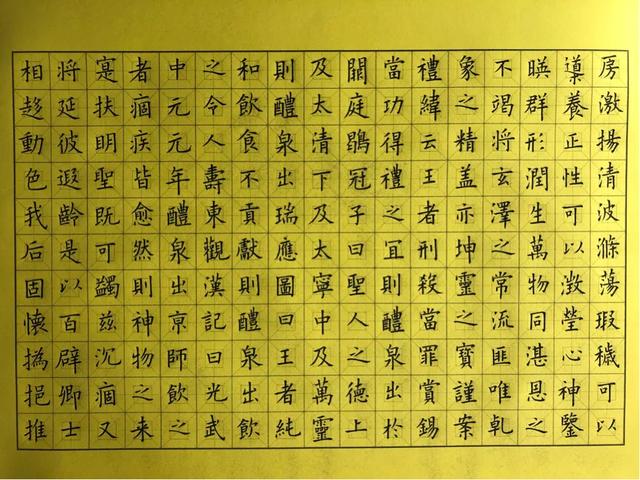 房激揚清波滌蕩瑕穢可以
導養正性可以澂瑩心神鑒
暎群形潤生萬物同湛恩之
不竭將玄澤之常流匪唯乹
象之精盖亦坤靈之寶謹案
禮緯云王者刑殺當罪賞錫
當功得禮之宜則醴泉出於
闕庭鶡冠子曰聖人之德上
及太清下及太寧中及萬靈
則醴泉出瑞應圖曰王者純
和飲食不貢獻則醴泉出飲
之令人壽東觀漢記曰光武
中元元年醴泉出京師飲之
者痼疾皆愈然則神物之来
寔扶明聖既可蠲兹沉痼又
將延彼遐齡是以百辟卿士
相趍動色我后固懷撝挹推